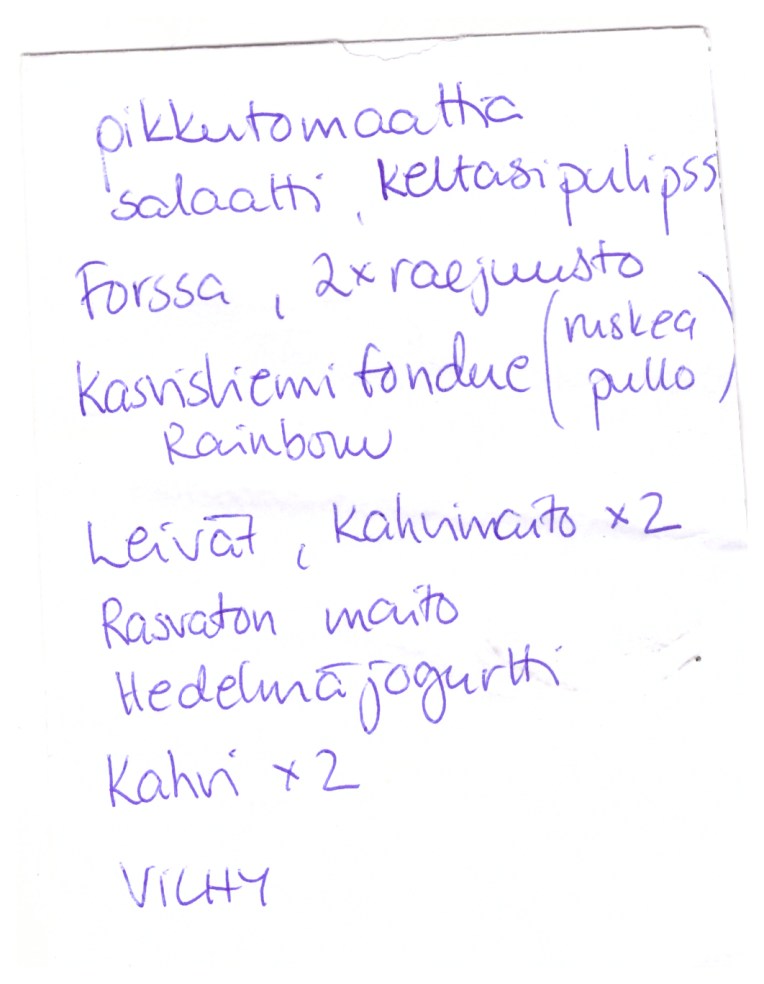 pikkutomaattia
salaatti, keltasipulipss
Forssa, 2x raejuusto
Kasvisliemi fondue (ruskea
pullo)
Rainbow
Leivät, Kahvimaito x2
Rasvaton maito
Hedelmäjogurtti
Kahvi x2
VICHY